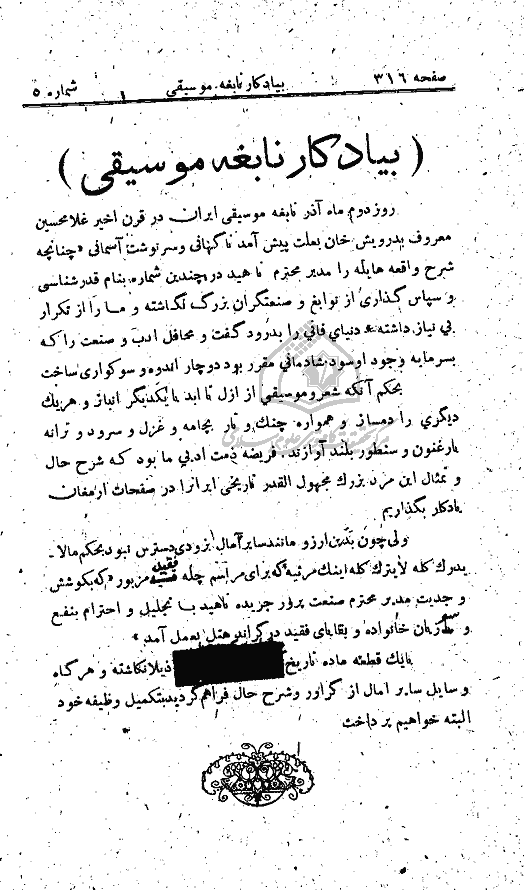 صفحه ۳۱۶ بیادگار نابغه موسیقی شماره ۵
( بیادگار نابغه موسیقی )
روز دوم ماه آذر نابغه موسیقی ایران در قرن اخیر غلامحسین
معروف بدرویش خان بعلت پیش آمد ناگهانی و سرنوشت آسمانی «چنانچه
شرح واقعه هایله را مدیر محترم ناهید در چندین شماره بنام قدرشناسی
و سپاس گذاری از نوابغ و صنعتگران بزرگ نگاشته و ما را از تکرار
بی نیاز داشته» دنیای فانی را بدرود گفت و محافل ادب و صنعت را که
بسرمایه وجود او سود شادمانی مقرر بود دوچار اندوه و سوکواری ساخت
بحکم آنکه شعر و موسیقی از ازل تا ابد با یکدیگر انباز و هریک
دیگری را دمساز و همواره چنگ و تار بچامه و غزل و سرود و ترانه
بارغنون و سنطور بلند آوازند، فریضه ذمت ادبی ما بود که شرح حال
و تمثال این مرد بزرگ مجهول القدر تاریخی ایرانرا در صفحات ارمغان
یادگار بگذاریم
ولی چون بدین آرزو مانند سایر آمال بزودی دسترس نبود بحکم مالا ـ
یدرک کله لایترک کله اینک مرثیه که برای مراسم چله فقید مزبور «که بکوشش
و جدیت مدیر محترم صنعت پرور جریده ناهید با تجلیل و احترام بنفع
و خانواده و بقایای فقید در گراندهتل بعمل آمد»
بایک قطعه ماده تاریخ ذیلا نگاشته و هرگاه
وسایل سایر امال از گراور و شرح حال فراهم گردید بتکمیل وظیفه خود
البته خواهیم پرداخت